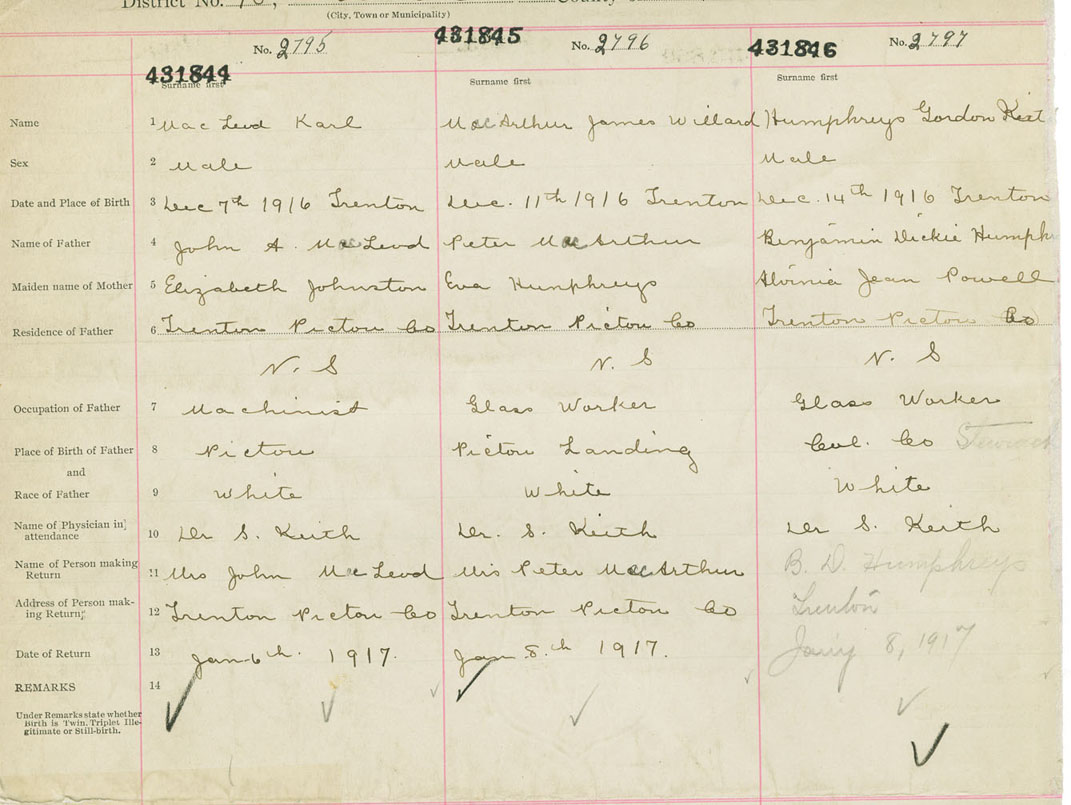 District No. 78,
(City, Town or Municipality)
No. 2795 No. 2796 No. 2797
431844 431845 431846
Surname first Surname first Surname first
Name 1 MacLeod Karl MacArthur James Willard Humphreys Gordon
Sex 2 Male Male Male
Date and Place of Birth 3 Dec 7th 1916 Trenton Dec. 11th 1916 Trenton Dec. 14th 1916 Trenton
Name of Father 4 John A. MacLeod Peter MacArthur Benjamin Dickie Humphr
Maiden name of Mother 5 Elizabeth Johnston Eva Humphreys Alvinia Jean Powell
Residence of Father 6 Trenton Pictou Co Trenton Pictou Co Trenton Pictou Co
N. S N. S N. S
Occupation of Father 7 Machinist Glass Worker Glass Worker
Place of Birth of Father 8 Pictou Pictou Landing Col. Co
and
Race of Father 9 White White White
Name of Physician in attendance 10 Dr S. Keith Dr. S. Keith Dr S. Keith
Name of Person making Return 11 Mrs John MacLeod Mrs Peter MacArthur B. D. Humphreys
Address of Person making Return; 12 Trenton Pictou Co Trenton Pictou Co Trenton
Date of Return 13 Jan 6th. 1917. Jan 8th 1917. Jan'y 8, 1917
REMARKS 14
Under Remarks state whether
Birth is Twin, Triplet, Ille-
gitimate or Still-birth.